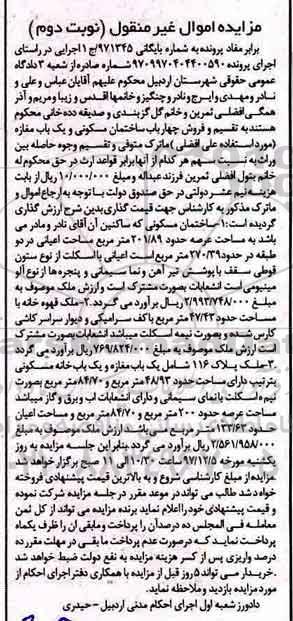 مزایده اموال غیر منقول (نوبت دوم)
برابر مفاد پرونده به شماره بایگانی ۹۷۱۳۴۵/ج ۱ اجرایی در راستای
اجرای پرونده ۹۷۰۹۹۷۰۴۰۴۴۰۰۵۹۰ شماره صادره از شعبه ۳ دادگاه
عمومی حقوقی شهرستان اردبیل محکوم علیهم آقایان عباس و علی و
نادر و مهدی و ایرج و نادر و چنگیز و خانمها اقدس و زیبا و مریم و آذر
همگی افضلی ثمرین و خانم گل گز بندی و صدیقه دده خانی محکوم
هستند به تقسیم و فروش چهار باب ساختمان مسکونی و یک باب مغازه
(مورد استفاده علی افضلی) ماترک متوفی و تقسیم وجوه حاصله بین
وراث به نسبت سهم هر کدام از آنها برابر قواعد ارث در حق محکوم له
خانم بتول افضلی ثمرین فرزند عبداله و مبلغ ۱۰/۰۰۰/۰۰۰ ریال از بابت
هزینه نیم عشر دولتی در حق صندوق دولت با توجه به ارجاع اموال و
ماترک مذکور به کارشناس جهت قیمت گذاری بدین شرح ارزش گذاری
گردیده است: ۱- ساختمان مسکونی که ساکنین آن آقای نادر و مادر می
باشد به مساحت عرصه حدود ۲۰۱/۸۹ متر مربع مساحت اعیانی در دو
طبقه در حدود ۲۷۰/۳۹ متر مربع است اعیانی با اسکلت از نوع ستون
قوطی سقف با پوشش تیر آهن و نما سیمانی و پنجره ها از نوع آلو
مینیومی است انشعابات بصورت مشترک است و ارزش ملک موصوف به
مبلغ ۲/۹۹۳/۷۴۸/۰۰۰ ریال بر آورد می گردد. ۲- ملک قهوه خانه با
مساحت حدود ۴۷/۴۳ متر مربع با کف سرامیکی و دیوار سراسر کاشی
کارس شده و بصورت نیمه اسکلت میباشد انشعابات بصورت مشترک
است ارزش ملک موصوف به مبلغ ۷۶۹/۸۲۴/۰۰۰ ریال برآورد می گردد
۳- ملک پلاک ۱۱۶ شامل یک باب مغازه و یک باب خانه مسکونی
بترتیب دارای مساحت حدود ۴۸/۹۳ متر مربع و ۸۴/۷۰ متر مربع بصورت
نیمه اسکلت با نمای سیمانی و دارای انشعابات آب و برق و گاز میباشد
مساحت عرصه حدود ۲۰۰ متر مربع و ۸۴/۷۰ متر مربع و مساحت اعیان
حدود ۱۳۳/۶۳ متر مربع می باشد ارزش ملک موصوف به مبلغ
۲/۵۶۱/۹۵۸/۰۰۰ ریال بر آورد می گردد بنابر این جلسه مزایده به روز
یکشنبه مورخه ۹۷/۱۲/۵ ساعت ۱۰/۳۰ الی ۱۱ صبح برگزار خواهد شد
.مزایده از مبلغ کارشناسی شروع و به بالاترین قیمت پیشنهادی فروخته
خواهد شد طالب می تواند در موعد مقرر در جلسه مزایده شرکت نموده
و قیمت پیشنهادی خود را اعلام نماید برنده مزایده می تواند از کل ثمن
معامله فی المجلس ده درصد آن را پرداخت و مابقی آن را ظرف یکماه
پرداخت نماید که در صورت عدم پرداخت ما بقی در مهلت مقرر ده
درصد واریزی پس از کسر هزینه مزایده به نفع دولت ضبط خواهد شد
.خریدار می تواند ۵ روز قبل از مزایده با همکاری دفتر اجرای احکام از
مورد مزایده بازدید و ملاحظه نماید.
دادورز شعبه اول اجرای احکام مدنی اردبیل - حیدری